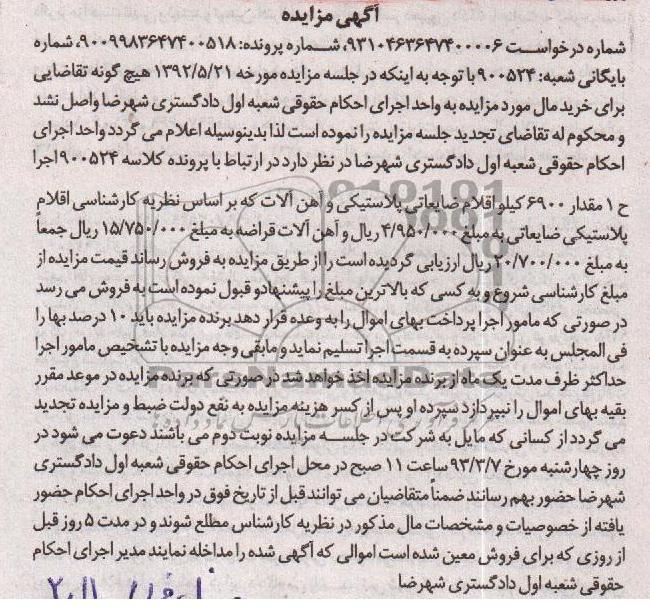 آگهی مزایده
شماره درخواست ۹۳۱۰۴۶۳۶۴۷۴۰۰۰۰۶، شماره پرونده: ۹۰۰۹۹۸۳۶۴۷۴۰۰۵۱۸، شماره
بایگانی شعبه: ۹۰۰۵۲۴ با توجه به اینکه در جلسه مزایده مورخه ۱۳۹۲/۵/۲۱ هیچ گونه تقاضایی
برای خرید مال مورد مزایده به واحد اجرای احکام حقوقی شعبه اول دادگستری شهرضا واصل نشد
و محکوم له تقاضای تجدید جلسه مزایده را نموده است لذا بدینوسیله اعلام می گردد واحد اجرای
احکام حقوقی شعبه اول دادگستری شهرضا در نظر دارد در ارتباط با پرونده کلاسه ۹۰۰۵۲۴ اجرا
ح ۱ مقدار ۶۹۰۰ کیلو اقلام ضایعاتی پلاستیکی و آهن آلات که بر اساس نظریه کارشناسی اقلام
پلاستیکی ضایعاتی به مبلغ ۴/۹۵۰/۰۰۰ ریال و آهن آلات قراضه به مبلغ ۱۵/۷۵۰/۰۰۰ ریال جمعاً
به مبلغ ۲۰/۷۰۰/۰۰۰ ریال ارزیابی گردیده است را از طریق مزایده به فروش رساند قیمت مزایده از
مبلغ کارشناسی شروع و به کسی که بالاترین مبلغ را پیشنهاد و قبول نموده است به فروش می رسد
در صورتی که مامور اجرا پرداخت بهای اموال را به وعده قرار دهد برنده مزایده باید ۱۰ درصد بها را
فی المجلس به عنوان سپرده به قسمت اجرا تسلیم نماید و مابقی وجه مزایده با تشخیص مامور اجرا
حداکثر ظرف مدت یک ماه از برنده مزایده اخذ خواهد شد در صورتی که برنده مزایده در موعد مقرر
بقیه بهای اموال را نپردازد سپرده او پس از کسر هزینه مزایده به نفع دولت ضبط و مزایده تجدید
می گردد از کسانی که مایل به شرکت در جلسه مزایده نوبت دوم می باشند دعوت می شود در
روز چهارشنبه مورخ ۹۳/۳/۷ ساعت ۱۱ صبح در محل اجرای احکام حقوقی شعبه اول دادگستری
شهرضا حضور بهم رسانند ضمناً متقاضیان می توانند قبل از تاریخ فوق در واحد اجرای احکام حضور
یافته از خصوصیات و مشخصات مال مذکور در نظریه کارشناس مطلع شوند و در مدت ۵ روز قبل
از روزی که برای فروش معین شده است اموالی که آگهی شده را مداخله نمایند مدیر اجرای احکام
حقوقی شعبه اول دادگستری شهرضا
ParsNamadData